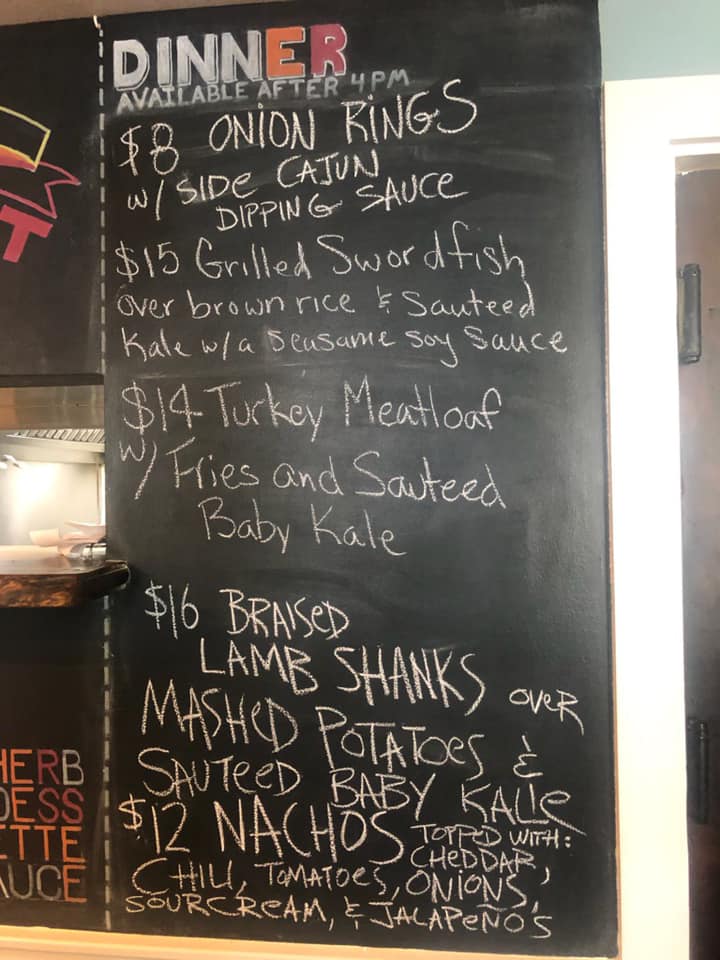 DINNER
AVAILABLE AFTER 4PM
$8 ONION RINGS
w/ SIDE CAJUN
DIPPING SAUCE
$15 Grilled Swordfish
over brown rice & Sauteed
Kale w/a Seasame soy Sauce
$14 Turkey Meatloaf
w/ Fries and Sauteed
Baby Kale
$16 BRAISED
LAMB SHANKS OVER
MASHED POTATOES &
SAUTEED BABY KALE
$12 NACHOS TOPPED WITH:
CHEDDAR,
CHILI, TOMATOES, ONIONS,
SOURCREAM, & JALAPEÑO'S
T
HERB
DESS
ETTE
AUCE